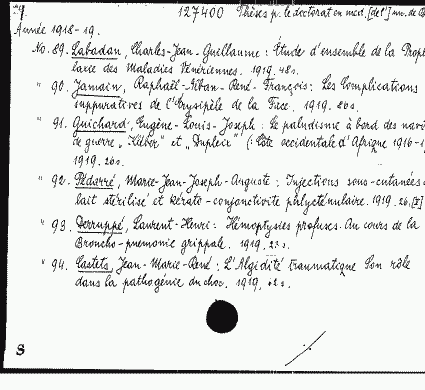 29. 127400 Thèses p. le doctorat en méd. [de l'] un. de
Année 1918-19.
No. 89. Labadan, Charles-Jean-Guillaume: Étude d'ensemble de la Prophy
laxie des Maladies Vénériennes. 1919. 48 s.
" 90. Jamain, Raphaël-Alban-René-François: Les Complications
suppuratives de l'Erysipèle de la Face. 1919. s.
" 91. Guichard, Eugène-Louis-Joseph: Le paludisme à bord des navi
de guerre „Kléber" et „Dupleix" (: Côte occidentale d'Afrique 1916-1
1919. 26 s.
" 92. Pédarré, Marie-Jean-Joseph-Auguste: Injections sous-cutanées d
lait stérilisé et Kérato-conjonctivite phlycténulaire. 1919. 26. [I]
" 93. Derruppé, Laurent-Henri: Hémoptysies profuses. Au cours de la
Broncho-pneumonie grippale. 1919. s.
" 94. Castets, Jean-Marie-René: L'Algidité traumatique Son rôle
dans la pathogénie du choc. 1919. s.
S